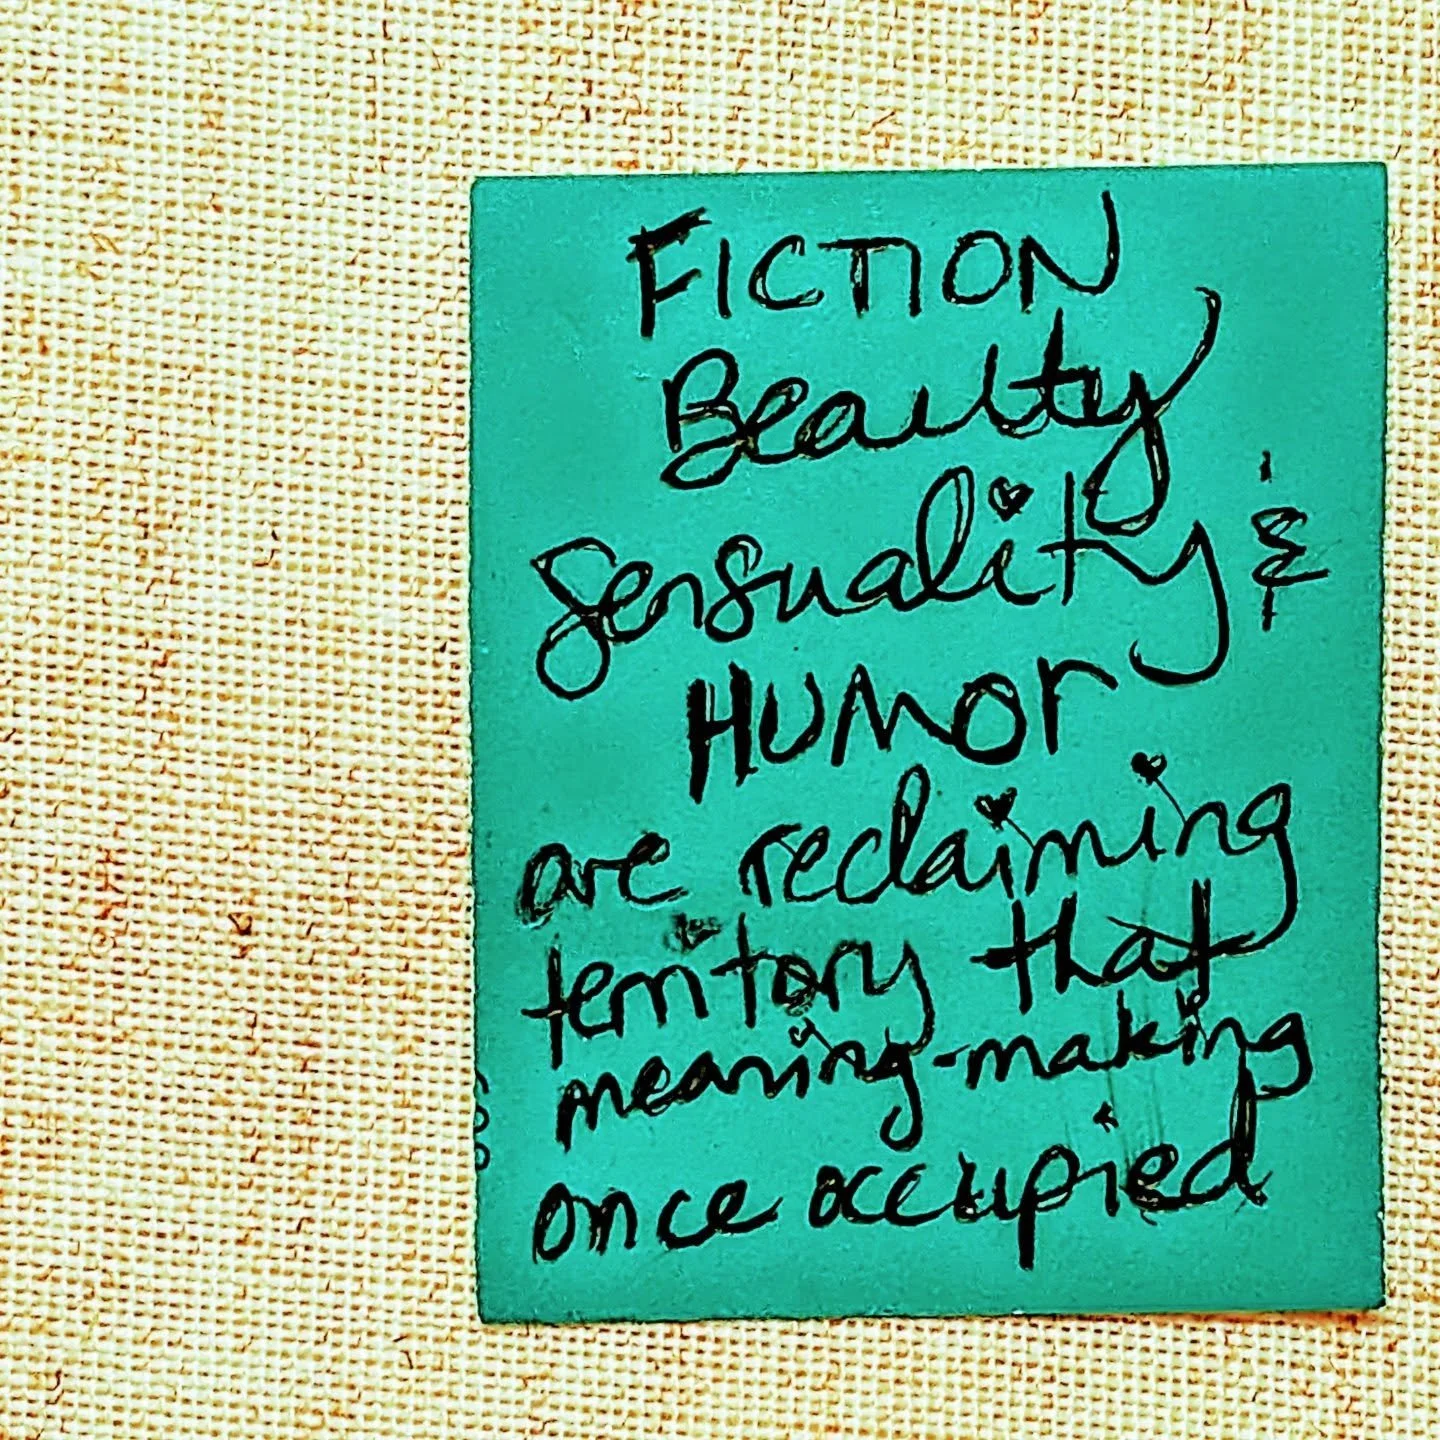 FICTION
Beauty
Sensuality &
HUMOr
are reclaiming
territory that
meaning-making
once occupied